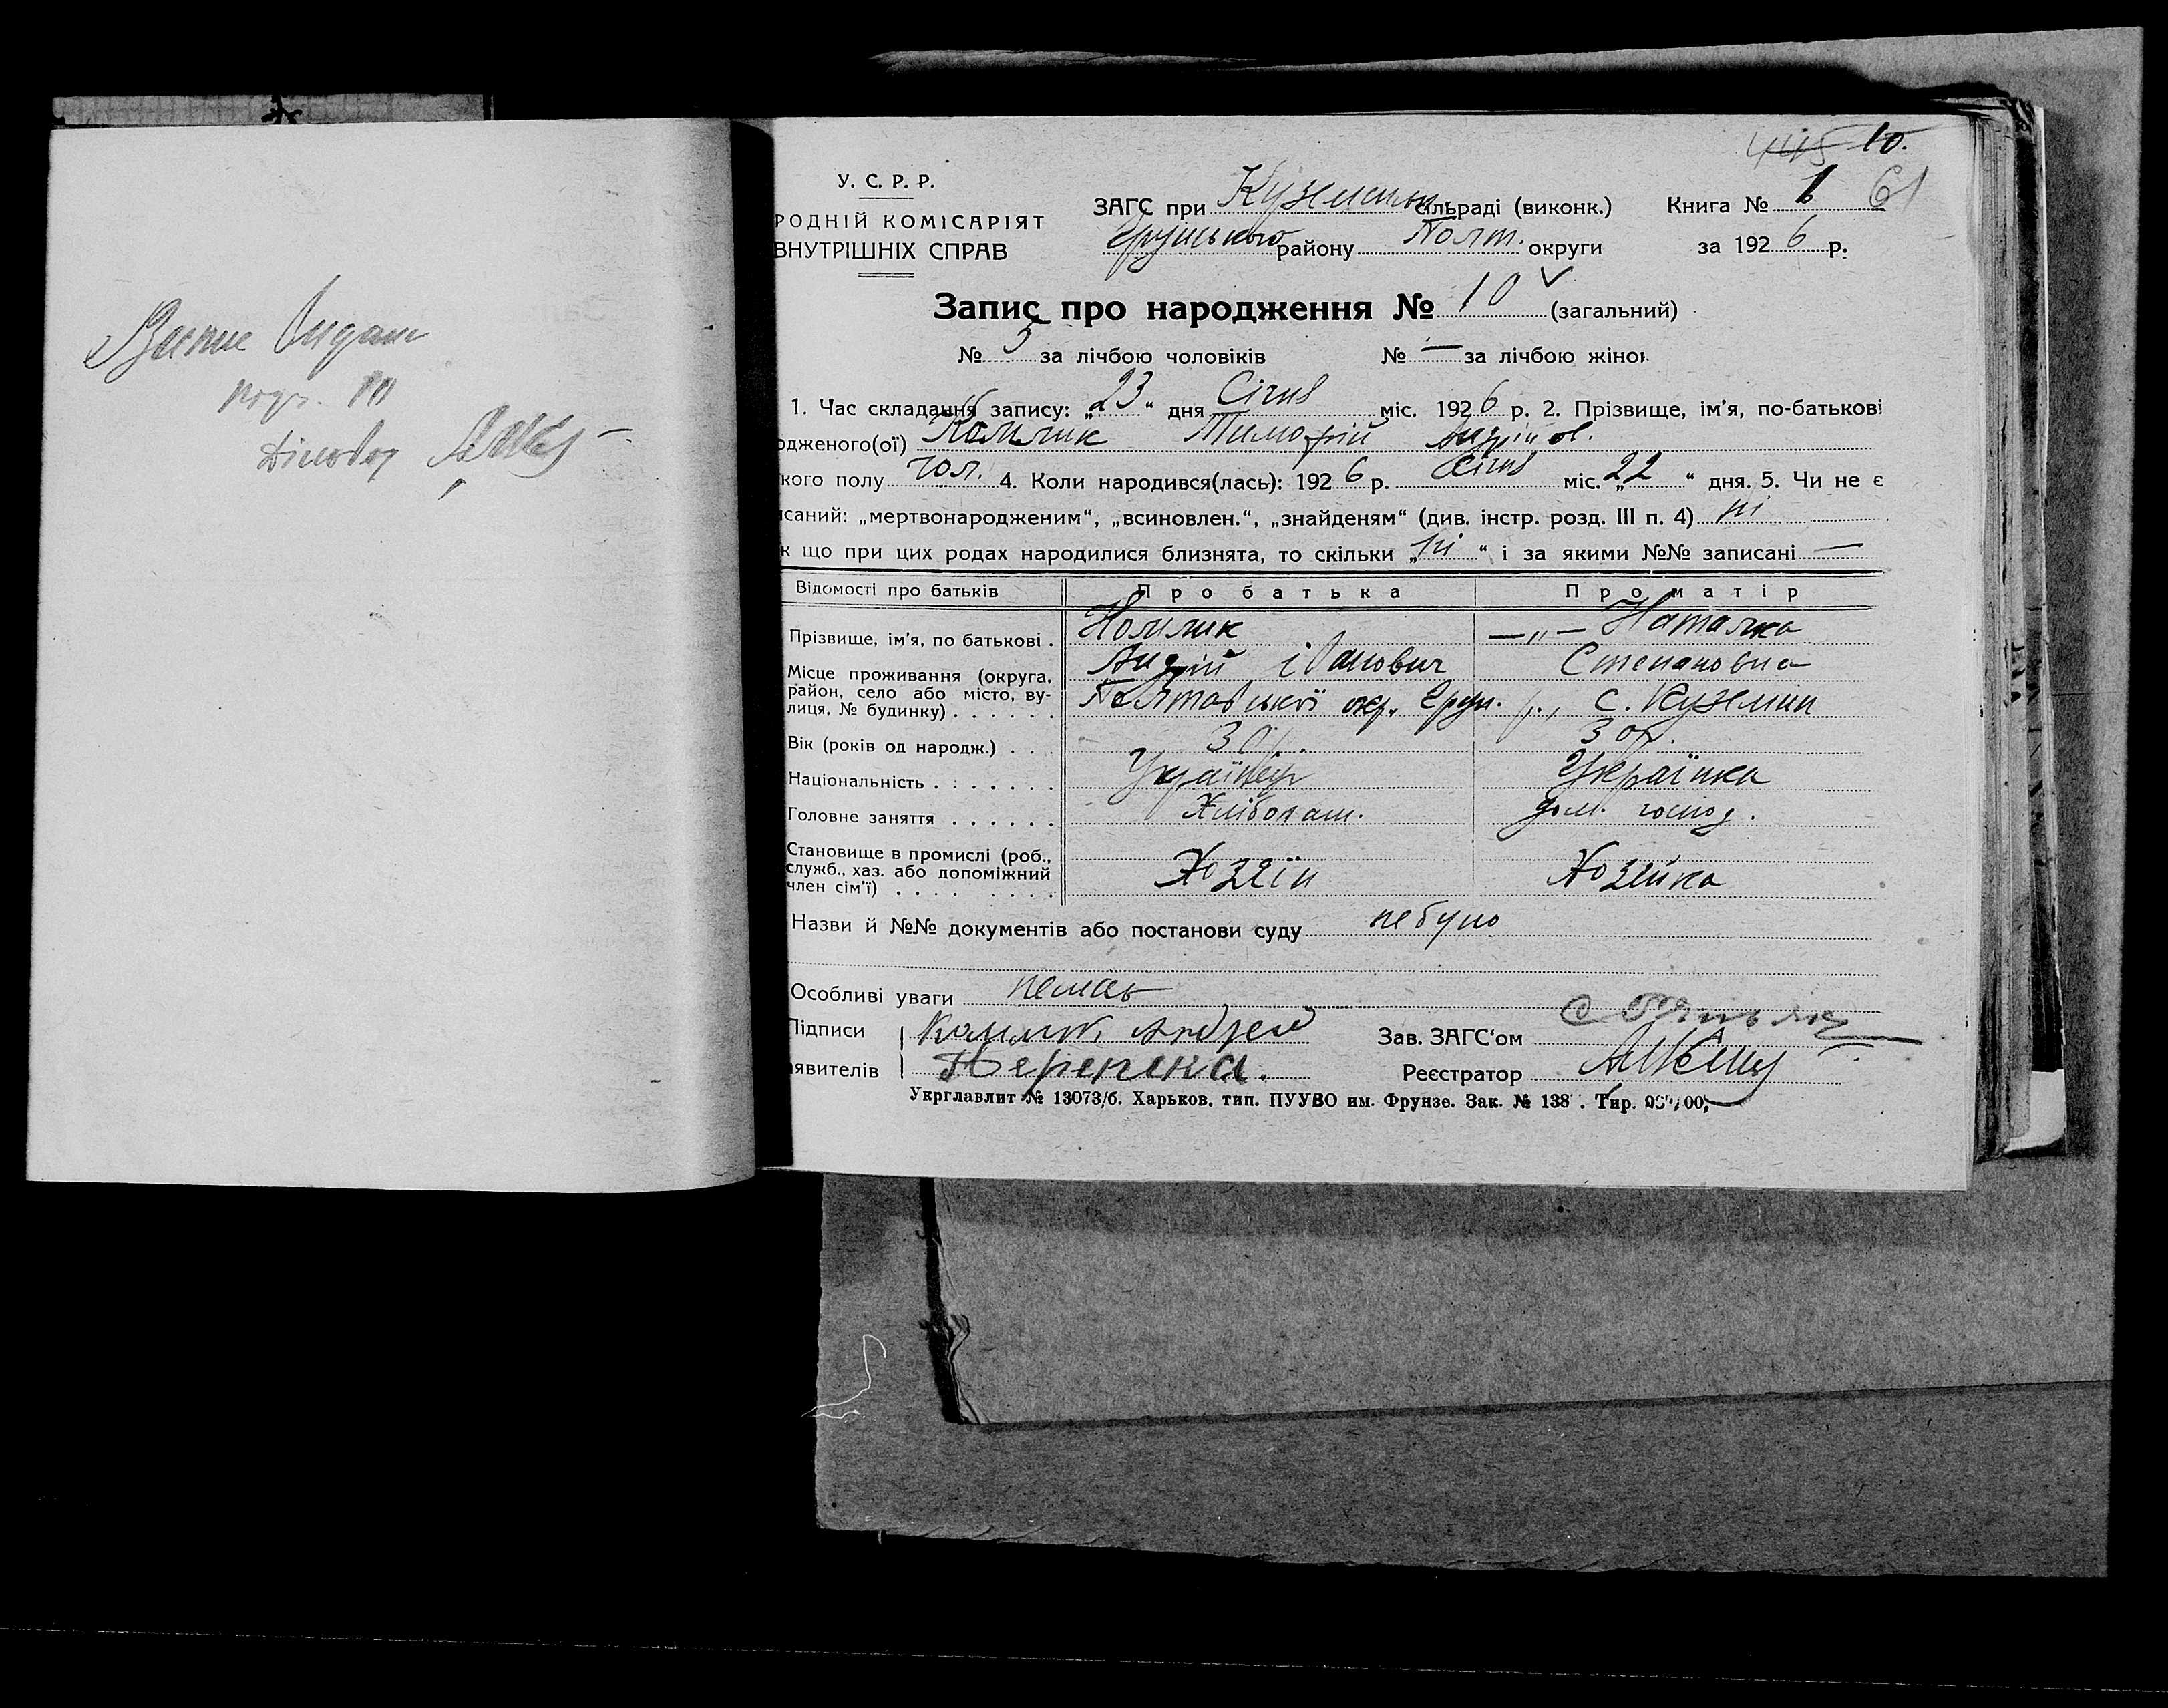 Виписе видане
445 10.
У. С. Р. Р.
РОДНІЙ КОМІСАРІЯТ
ВНУТРІШНІХ СПРАВ
ЗАГС при Куземин. сільраді (виконк.) Книга № 1 61
Грунського району Полт. округи за 1926 р.
Запис про народження № 10 (загальний)
№ 5 за лічбою чоловіків № — за лічбою жінок
1. Час складання запису: „23“ дня Січня міс. 1926 р. 2. Прізвище, ім'я, по-батькові
одженого(ої) Комлик Тимофій Андрійов.
кого полу чол. 4. Коли народився(лась): 1926 р. Січня міс. „22“ дня. 5. Чи не є
исаний: „мертвонародженим“, „всиновлен.“, „знайденям“ (див. інстр. розд. III п. 4) ні
к що при цих родах народилися близнята, то скільки „ні“ і за якими №№ записані —
Відомості про батьків Про батька Про матір
Прізвище, ім'я, по батькові . Комлик —„— Наталка
Андрій іванович Степановна
Місце проживання (округа, район, село або місто, вулиця, № будинку) . . . . . . Полтавської окр. Грун. р., с. Куземин
Вік (років од народж.) . . . 30 р. 30 р.
Національність . . . . . . . Українець Українка
Головне заняття . . . . . . Хлібопаш. дом. господ.
Становище в промислі (роб.,
служб., хаз. або допоміжний
член сім'ї) . . . . . . . . Хозяїн Хозяйка
Назви й №№ документів або постанови суду небуло
Особливі уваги немає
Підписи Комлик Андрей Зав. ЗАГС'ом
явителів Перепека. Реєстратор
Укрглавлит № 13073/б. Харьков. тип. ПУУВО им. Фрунзе. Зак. № 138 . Тир.